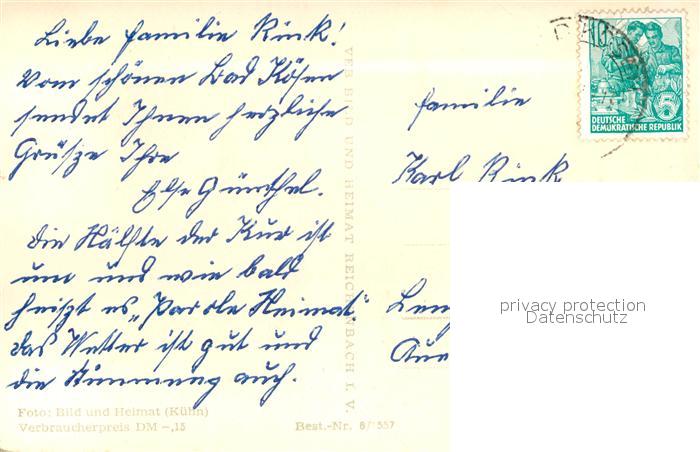 Liebe Familie Rink!
Vom schönen Bad Kösen
sendet Ihnen herzliche
Grüsze Ihre
Else Günthel.
Die Hälfte der Kur ist
um und wie bald
heiszt es „Parole Heimat".
Das Wetter ist gut und
die Stimmung auch.
Foto: Bild und Heimat (Kühn)
Verbraucherpreis DM -,15
Best.-Nr. 6/1557
VEB BILD UND HEIMAT REICHENBACH I. V.
DEUTSCHE
DEMOKRATISCHE REPUBLIK
5
Familie
Karl Rink
Len
Aue
privacy protection
Datenschutz